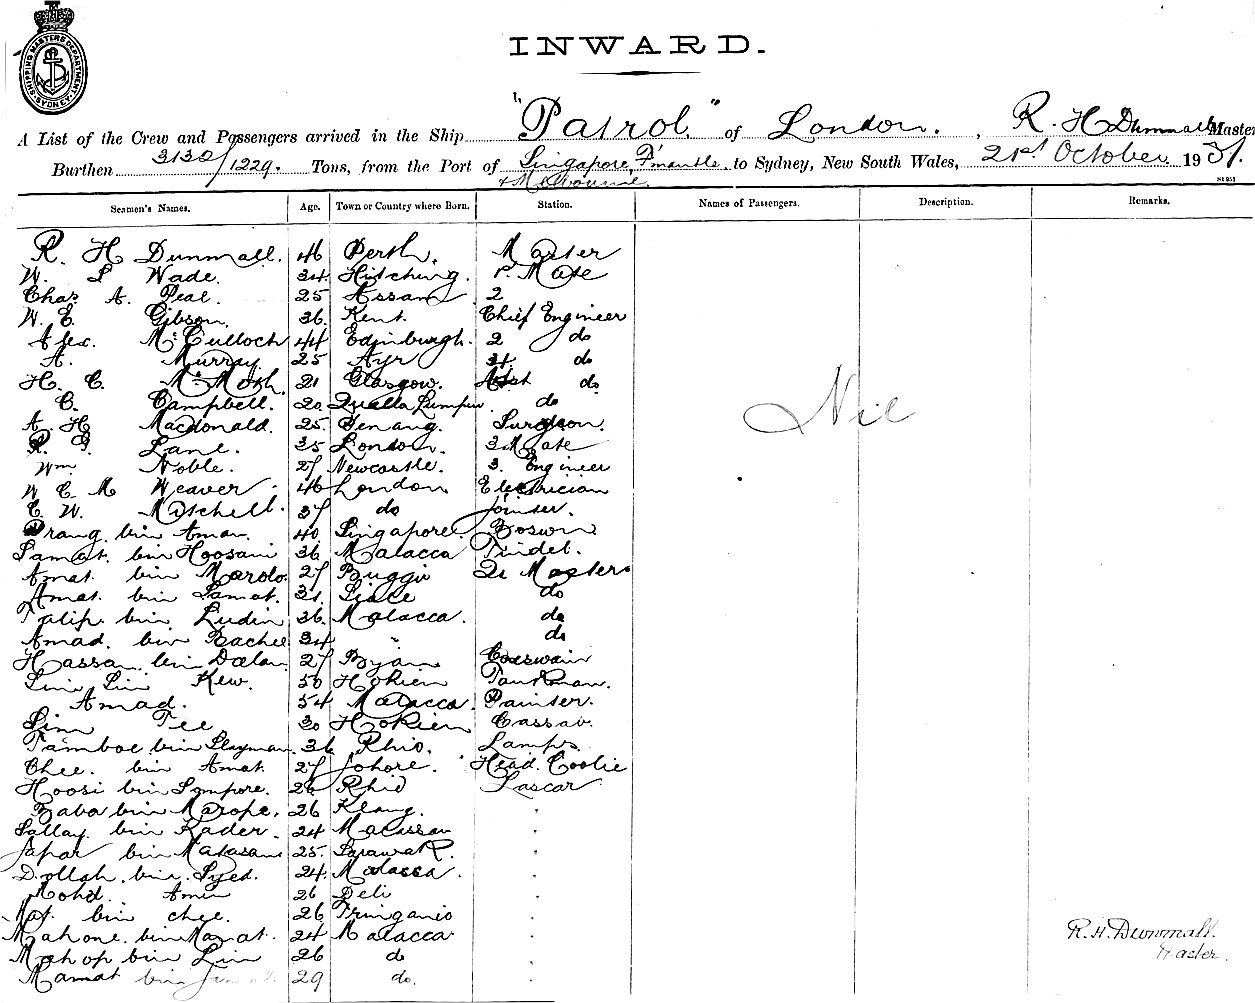 SHIPPING MASTERS DEPARTMENT SYDNEY
INWARD.
A List of the Crew and Passengers arrived in the Ship "Patrol" of London. , R. H Dunmall Master
Burthen 3130/1229. Tons, from the Port of Singapore, F'mantle & Melbourne. to Sydney, New South Wales, 21st October 1931.
St 951
Seamen's Names. Age. Town or Country where Born. Station. Names of Passengers. Description. Remarks.
R. H Dunmall. 46 Perth. Master
W. L Wade. 34 Hitching. 1st Mate
Chas A. Peal. 25 Assam 2
W. E. Gibson. 36 Kent. Chief Engineer
Alex. McCulloch 44 Edinburgh. 2 do
A. Murray. 25 Ayr 4 do
H. C. McMosh. 21 Glasgow. Asst do
C. Campbell. 20 Qualla Lumpur do
A. H Macdonald. 25. Penang. Surgeon.
R. G. Lane. 35 London. 3 Mate
Wm Noble. 27 Newcastle. 3. Engineer
W C M Weaver 46 London Electrician
C. W. Mitchell. 37 do Joiner.
Drang bin Aman. 40 Singapore. Boswn
Samat. bin Hoosain 36 Malacca Tindel.
Amat. bin Mardo. 27 Buggis Qr Masters
Amat. bin Samat. 31 do
Talip. bin Ludin 36 Malacca. do
Amad. bin Bachee 34 " do
Hassan. bin Dalan. 27 Byan Coxswain
Lim Sin Kew. 50 Hokien
Amad. 54 Malacca. Painter.
Lim Tee 30 Hokien Cassab.
Tamboe bin Slayman. 36 Rhio. Lamps
Chee. bin Amat. 27 Johore. Head. Coolie
Hoosi bin Sompore. 26 Rhio Lascar
Baba bin Marope. 26 Klang.
Sallay. bin Kader. 24 Macassar
Japar bin Matasan 25. Sarawak.
Dollah. bin. Syed. 24. Malacca.
Mohd. Amin 26 Deli
Mat. bin chee. 26 Tringanio
Mahone. bin Manat. 24 Malacca
Mahop bin Lin 26 do
Mamat bin 29 do.
Nil
R. H. Dunmall.
Master.